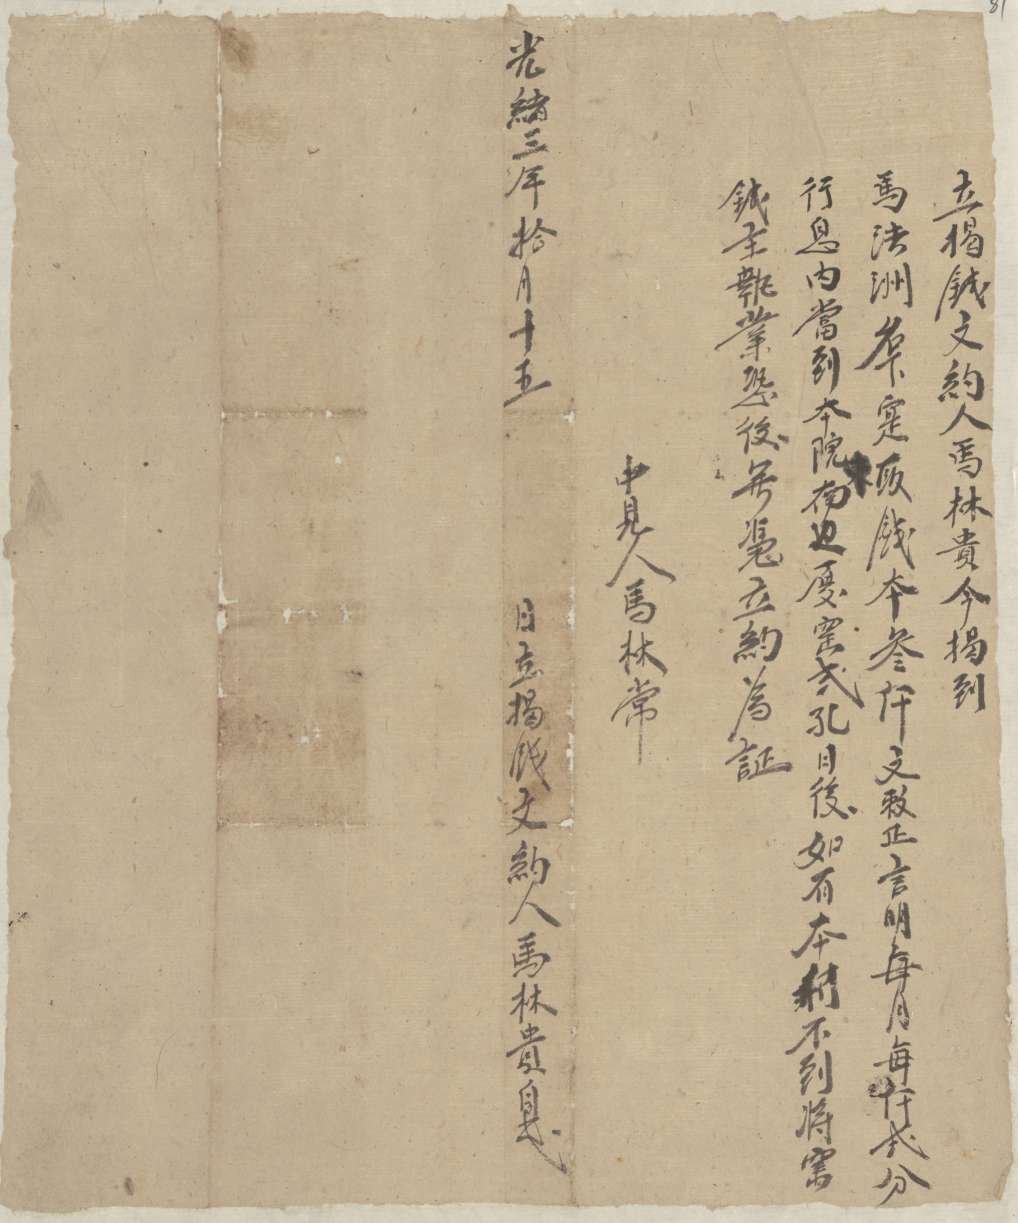 立揭錢文約人馬林貴今揭到
馬法洲名下寔取錢本叁仟文整正言明每月每仟弍分
行息内當到本院南边厦窑弍孔日後如有本利不到將窑
錢主執業恐後無憑立約為証
中見人馬林常
光緒三年拾月十五 日立揭錢文約人馬林貴
81